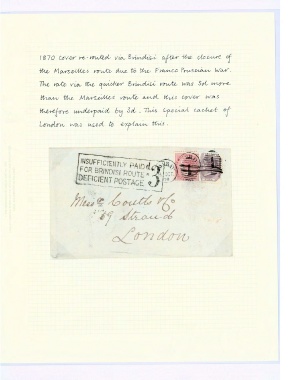 1870 cover re-routed via Brindisi after the closure of
the Marseilles route due to the Franco Prussian War.
The rate via the quicker Brindisi route was 3d more
than the Marseilles route and this cover was
therefore underpaid by 3d. This special cachet of
London was used to explain this.
INSUFFICIENTLY PAID
FOR BRINDISI ROUTE
DEFICIENT POSTAGE 3
Mess Coutts & Co
59 Strand
London